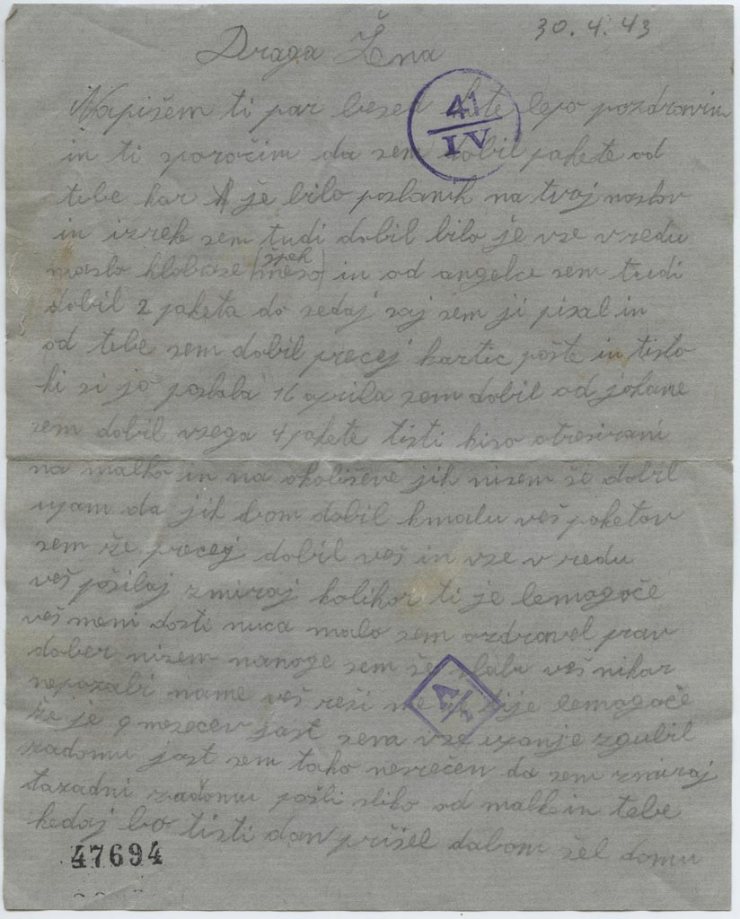 30.4.43
Draga Žena
Napišem ti par besed te lepo pozdravim
41
IV
in ti sporočim da sem dobil pakete od
tebe kar je bilo poslanih na tvoj naslov
in izrek sem tudi dobil bilo je vse vredu
špek
maslo klobase (meso) in od angelce sem tudi
dobil 2 paketa do sedaj saj sem ji pisal in
od tebe sem dobil precej kartic pošte in tisto
ki si jo poslala 16 aprila sem dobil od johame
sem dobil vsega 4 pakete tisti kiso
na malko in na jih nisem še dobil
upam da jih bom dobil kmalu veš paketov
sem že precej dobil veš in vse v redu
veš pošilaj zmiraj kolikor ti je lemogoče
veš meni dosti nuca malo sem ozdravel prav
dober nisem nanoge sem še slab veš nikar
nepozabi name veš reši me tije lemogoče
A/
že je 9 mesecev jast sem vse upanje zgubil
zadomu jast sem tako nesrečen da sem zmiraj
tazadni zadomu pošli sliko od malke in tebe
kedaj bo tisti dan prišel dabom šel domu
47694